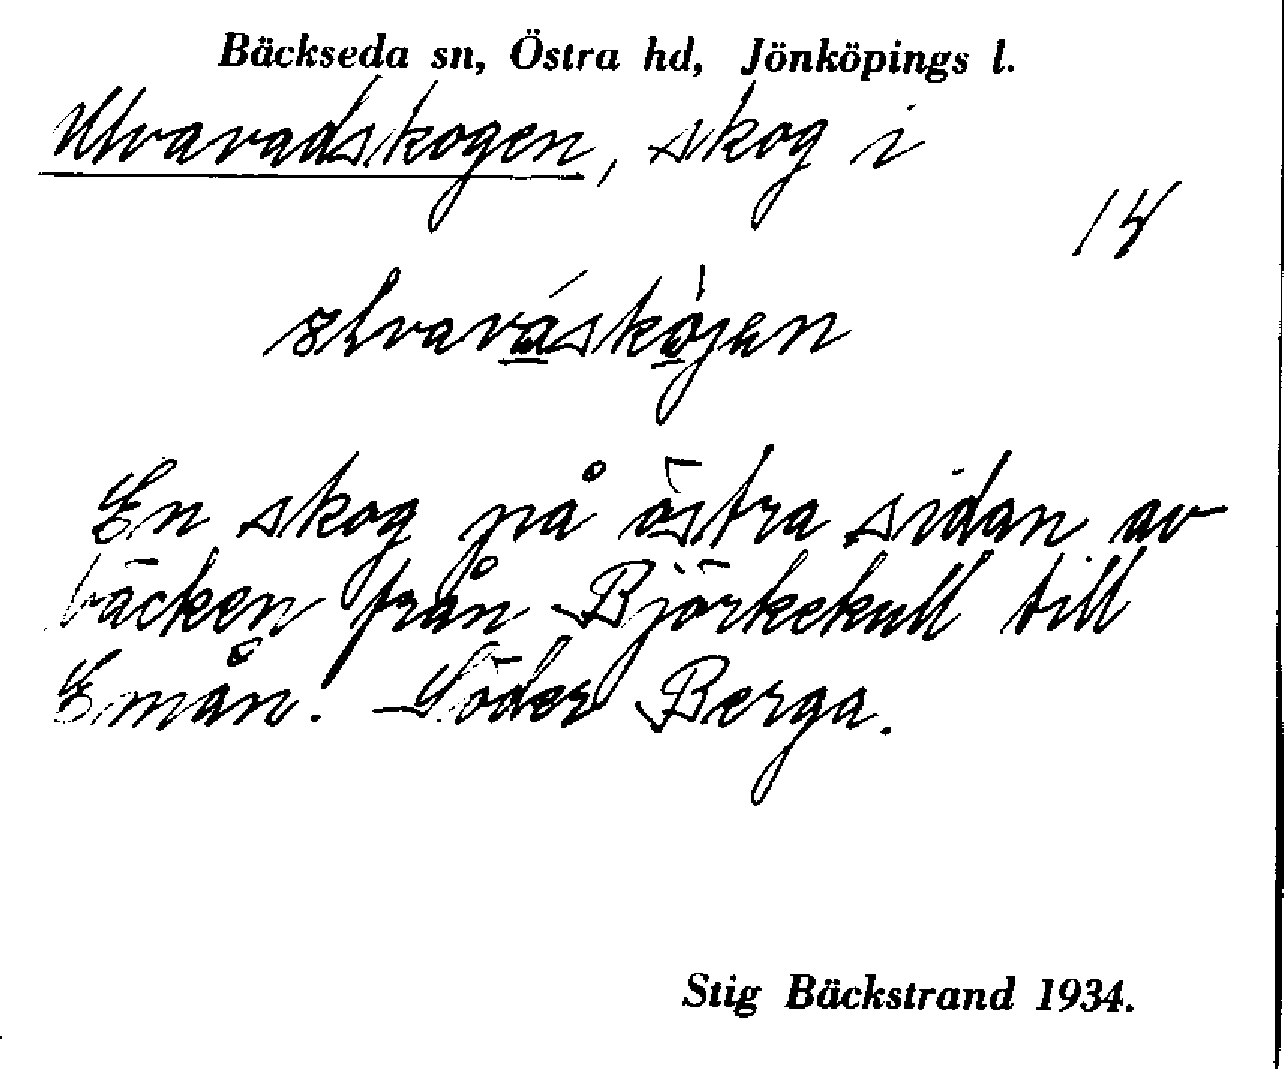 Bäckseda sn, Östra hd, Jönköpings l.
skog i
14
En skog på östra sidan av
bäcken från Björkekull till
Emån. Söder Berga.
Stig Bäckstrand 1934.